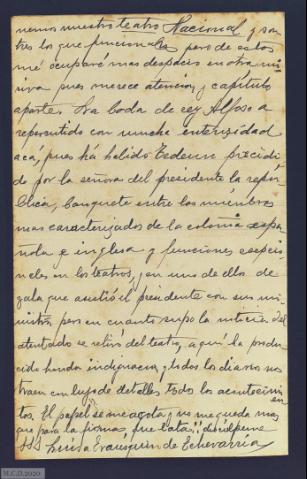 nemos nuestro teatro Nacional y son
tres los que funcionan pero de estos
me ocuparé mas despacio en otra mi-
siva pues merece atencion y capitulo
aparte. La boda de rey Alfoso a
repersutido con munche entensidad
acá, pues há habido Tedeun precidi-
do por la señora del presidente la repú-
blica, banquete entre los miembros
mas caracterizados de la colonia espa-
ñola e inglesa y funciones especi-
eles en los teatros, y en uno de ellos de
gala que asistió el presidente con sus mi-
nistros pero en cuanto supo la noticia del
atentado se retiró del teatro, a quí la produ-
cido honda indignacion, y todos los diarios nos
traen con lujo de detalles todo los acontecimi
en
tos. El papel se me acaba y no me queda mas
que para la firma, que lata!!
SSS Luisa Eraüsquin de Echevarria
M.C.D.2020